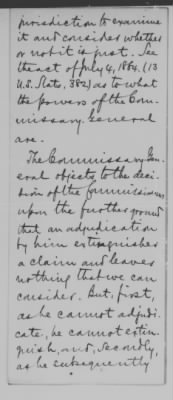 jurisdiction to examine
it and consider whether
or not it is just. See
the act of July 4, 1864. (13
U.S. Stats, 382) as to what
the powers of the Com-
missary General
are.
The Commissary Gen-
eral objects to the deci-
sion of the Commissioner
upon the further ground
that an adjudication
by him extinguishes
a claim and leaves
nothing that we can
consider. But, first,
as he cannot adjudi-
cate, he cannot extin-
guish, and, secondly,
as he subsequently